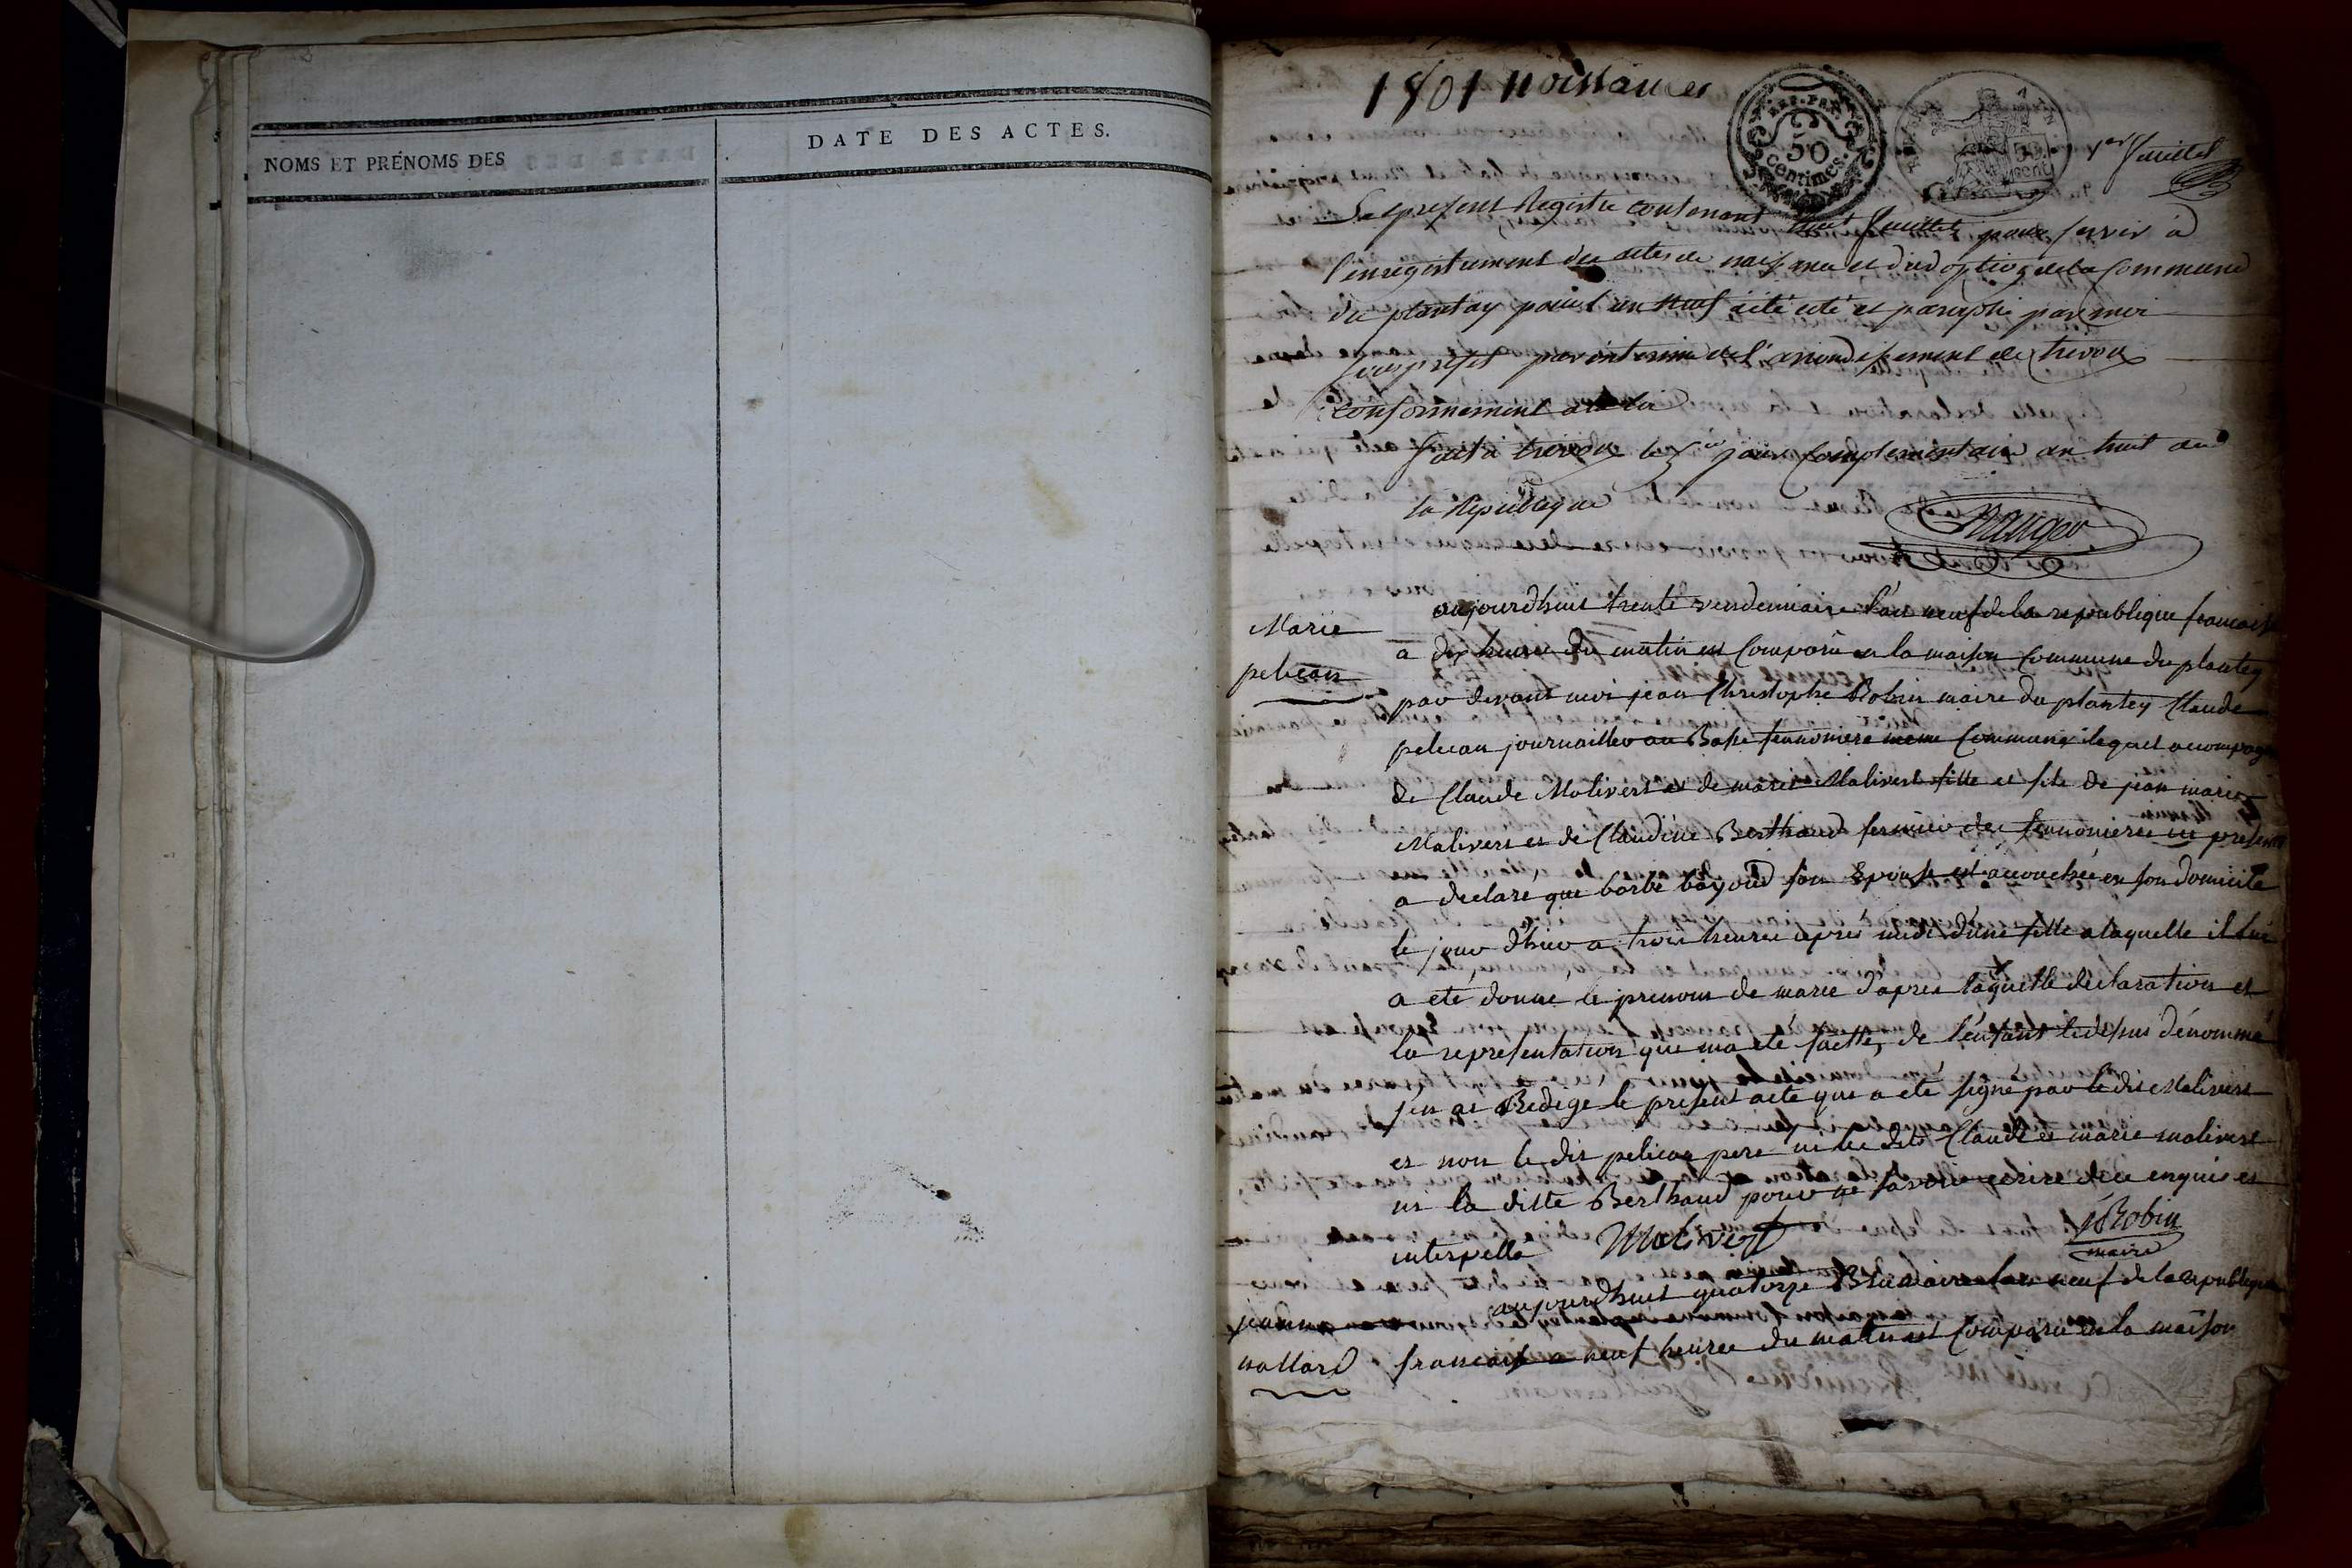 NOMS ET PRÉNOMS DES
DATE DES ACTES.
1801 Noissances
REP. FRA.
50
Centimes.
1er feuillet
Le present Registre contenant huit feuillets pour servir à
l'enregistrement des actes de naissance et d'adoption de la Commune
du plantay pour l'an neuf a été coté et paraphé par moi
sous prefet par interim de l'arrondissement de trevoux
conformement a la loi
fait à trevoux le 5e jour Complementaire an huit de
la Republique
Marie
pelican
aujourdhuit trente vendemiaire l'an neuf de la republique francaise
a dix heures du matin est Comparu en la maison Commune du plantey
par devant moi jean Christophe Robin maire du plantey Claude
pelican journaillier au Bas même Commune lequel acompagné
de Claude Malivert et de marie Malivert fille et fils de jean marie
Malivert et de Claudine Berthaud fermier des present
a declaré que barbe bayoud son Epouse est accouchée en son domicile
le jour d'hier a trois heures après midi d'une fille a laquelle il lui
a eté donné le prenom de marie d'apres laquelle declaration et
la representation qui ma eté faitte, de l'enfant cidessus dénommé
j'en ai Redigé le present acte qui a eté signé par le dit Malivert
et non le dit pelican pere ni les dits Claude et marie malivert
ni la ditte Berthaud pour ne savoir ecrire de ce enquis et
interpellé Malivert JRobin
maire
jeanne
mallard
aujourdhuit quatorze Brumaire l'an neuf de la republique
francaise a neuf heures du matin est Comparu en la maison